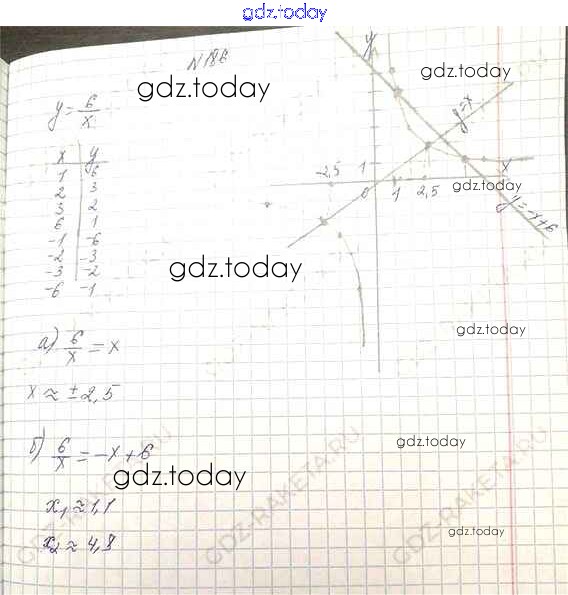 gdz.today
N 186
gdz.today
gdz.today
y = 6/x
x | y
1 | 6
2 | 3
3 | 2
6 | 1
-1 | -6
-2 | -3
-3 | -2
-6 | -1
y
y=x
-2,5
1
0
1
2,5
x
gdz.today
y=-x+6
gdz.today
gdz.today
а) 6/x = x
x ≈ ±2,5
б) 6/x = -x+6
gdz.today
gdz.today
x₁ ≈ 1,1
x₂ ≈ 4,8
gdz.today
GDZ-RAKETA.RU
GDZ-RAKETA.RU
GDZ-RAKETA.RU